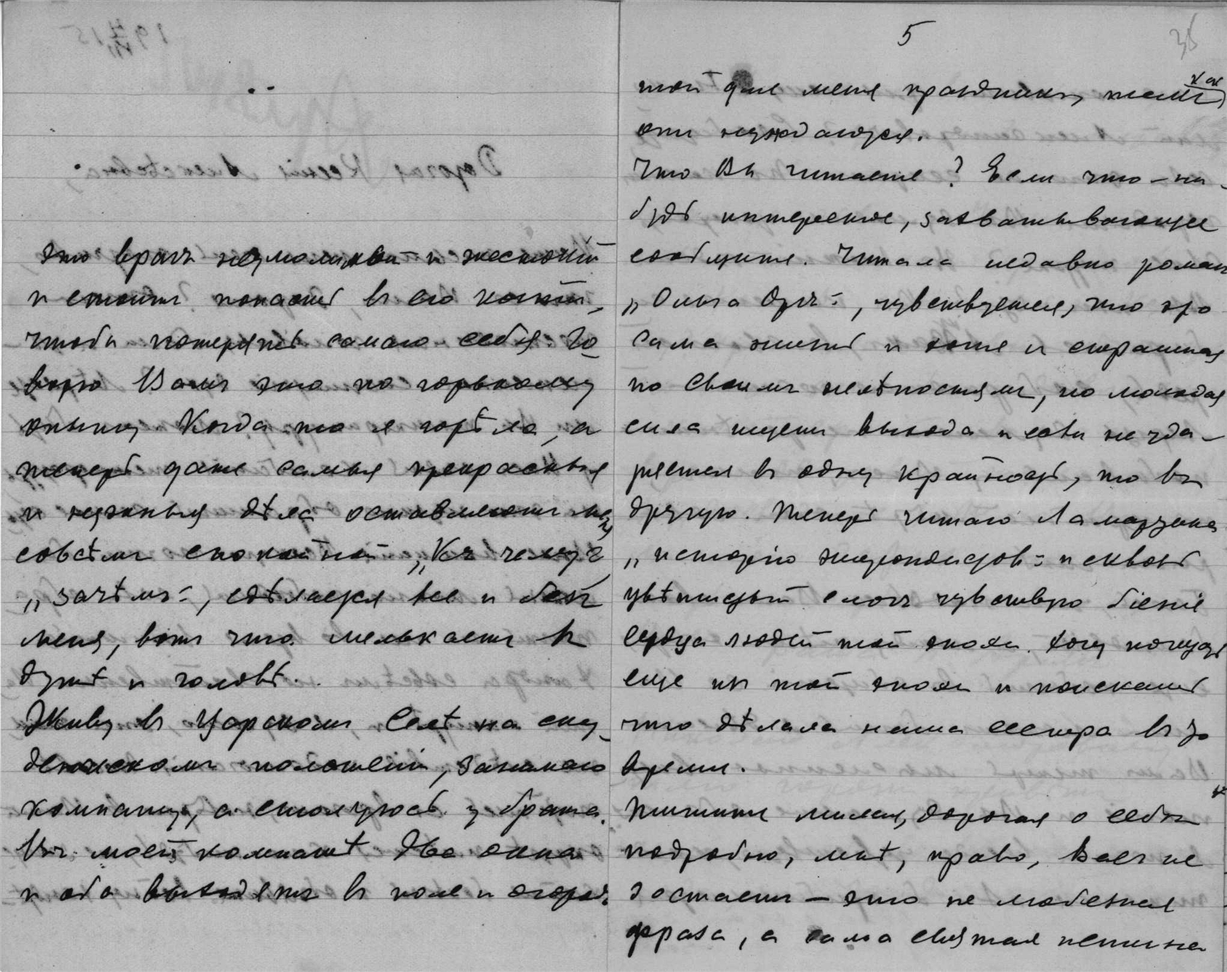 это врагъ неумолимый и жестокій
и стоитъ попасть въ его когти,
чтобы потерять самаго себя. Го-
ворю Вамъ это по горькому
опыту. Когда то я горѣла, а
теперь даже самыя прекрасныя
и нужныя дѣла оставляютъ меня
совсѣмъ спокойной „Къ чему",
„зачѣмъ", сдѣлается все и безъ
меня, вотъ что мелькаетъ въ
душѣ и головѣ.
Живу въ Царскомъ Селѣ на сту-
денческомъ положеніи, занимаю
комнату, а столуюсь у брата.
Въ моей комнатѣ два окна
и оба выходятъ въ поле и огородъ
5
36
той для меня праздникъ, такъ какъ
они нуждаются.
Что Вы читаете? Если что-ни-
будь интересное, захватывающее
сообщите. Читала недавно романъ
„Ольга Орг", чувствуется, что это
сама жизнь и хотя и страшная
по своимъ нелѣпостямъ, но молодая
сила ищетъ выхода и если не уда-
ряется въ одну крайность, то въ
другую. Теперь читаю Ламартина
„исторію жирондистовъ" и сквозь
цвѣтистый слогъ чувствую біеніе
сердца людей той эпохи. Хочу
еще изъ той эпохи и поискать
что дѣлала наша сестра въ это
время.
Пишите милая, дорогая о себѣ
подробно, мнѣ, право, Васъ не
достаетъ — это не любезная
фраза, а сама святая истина